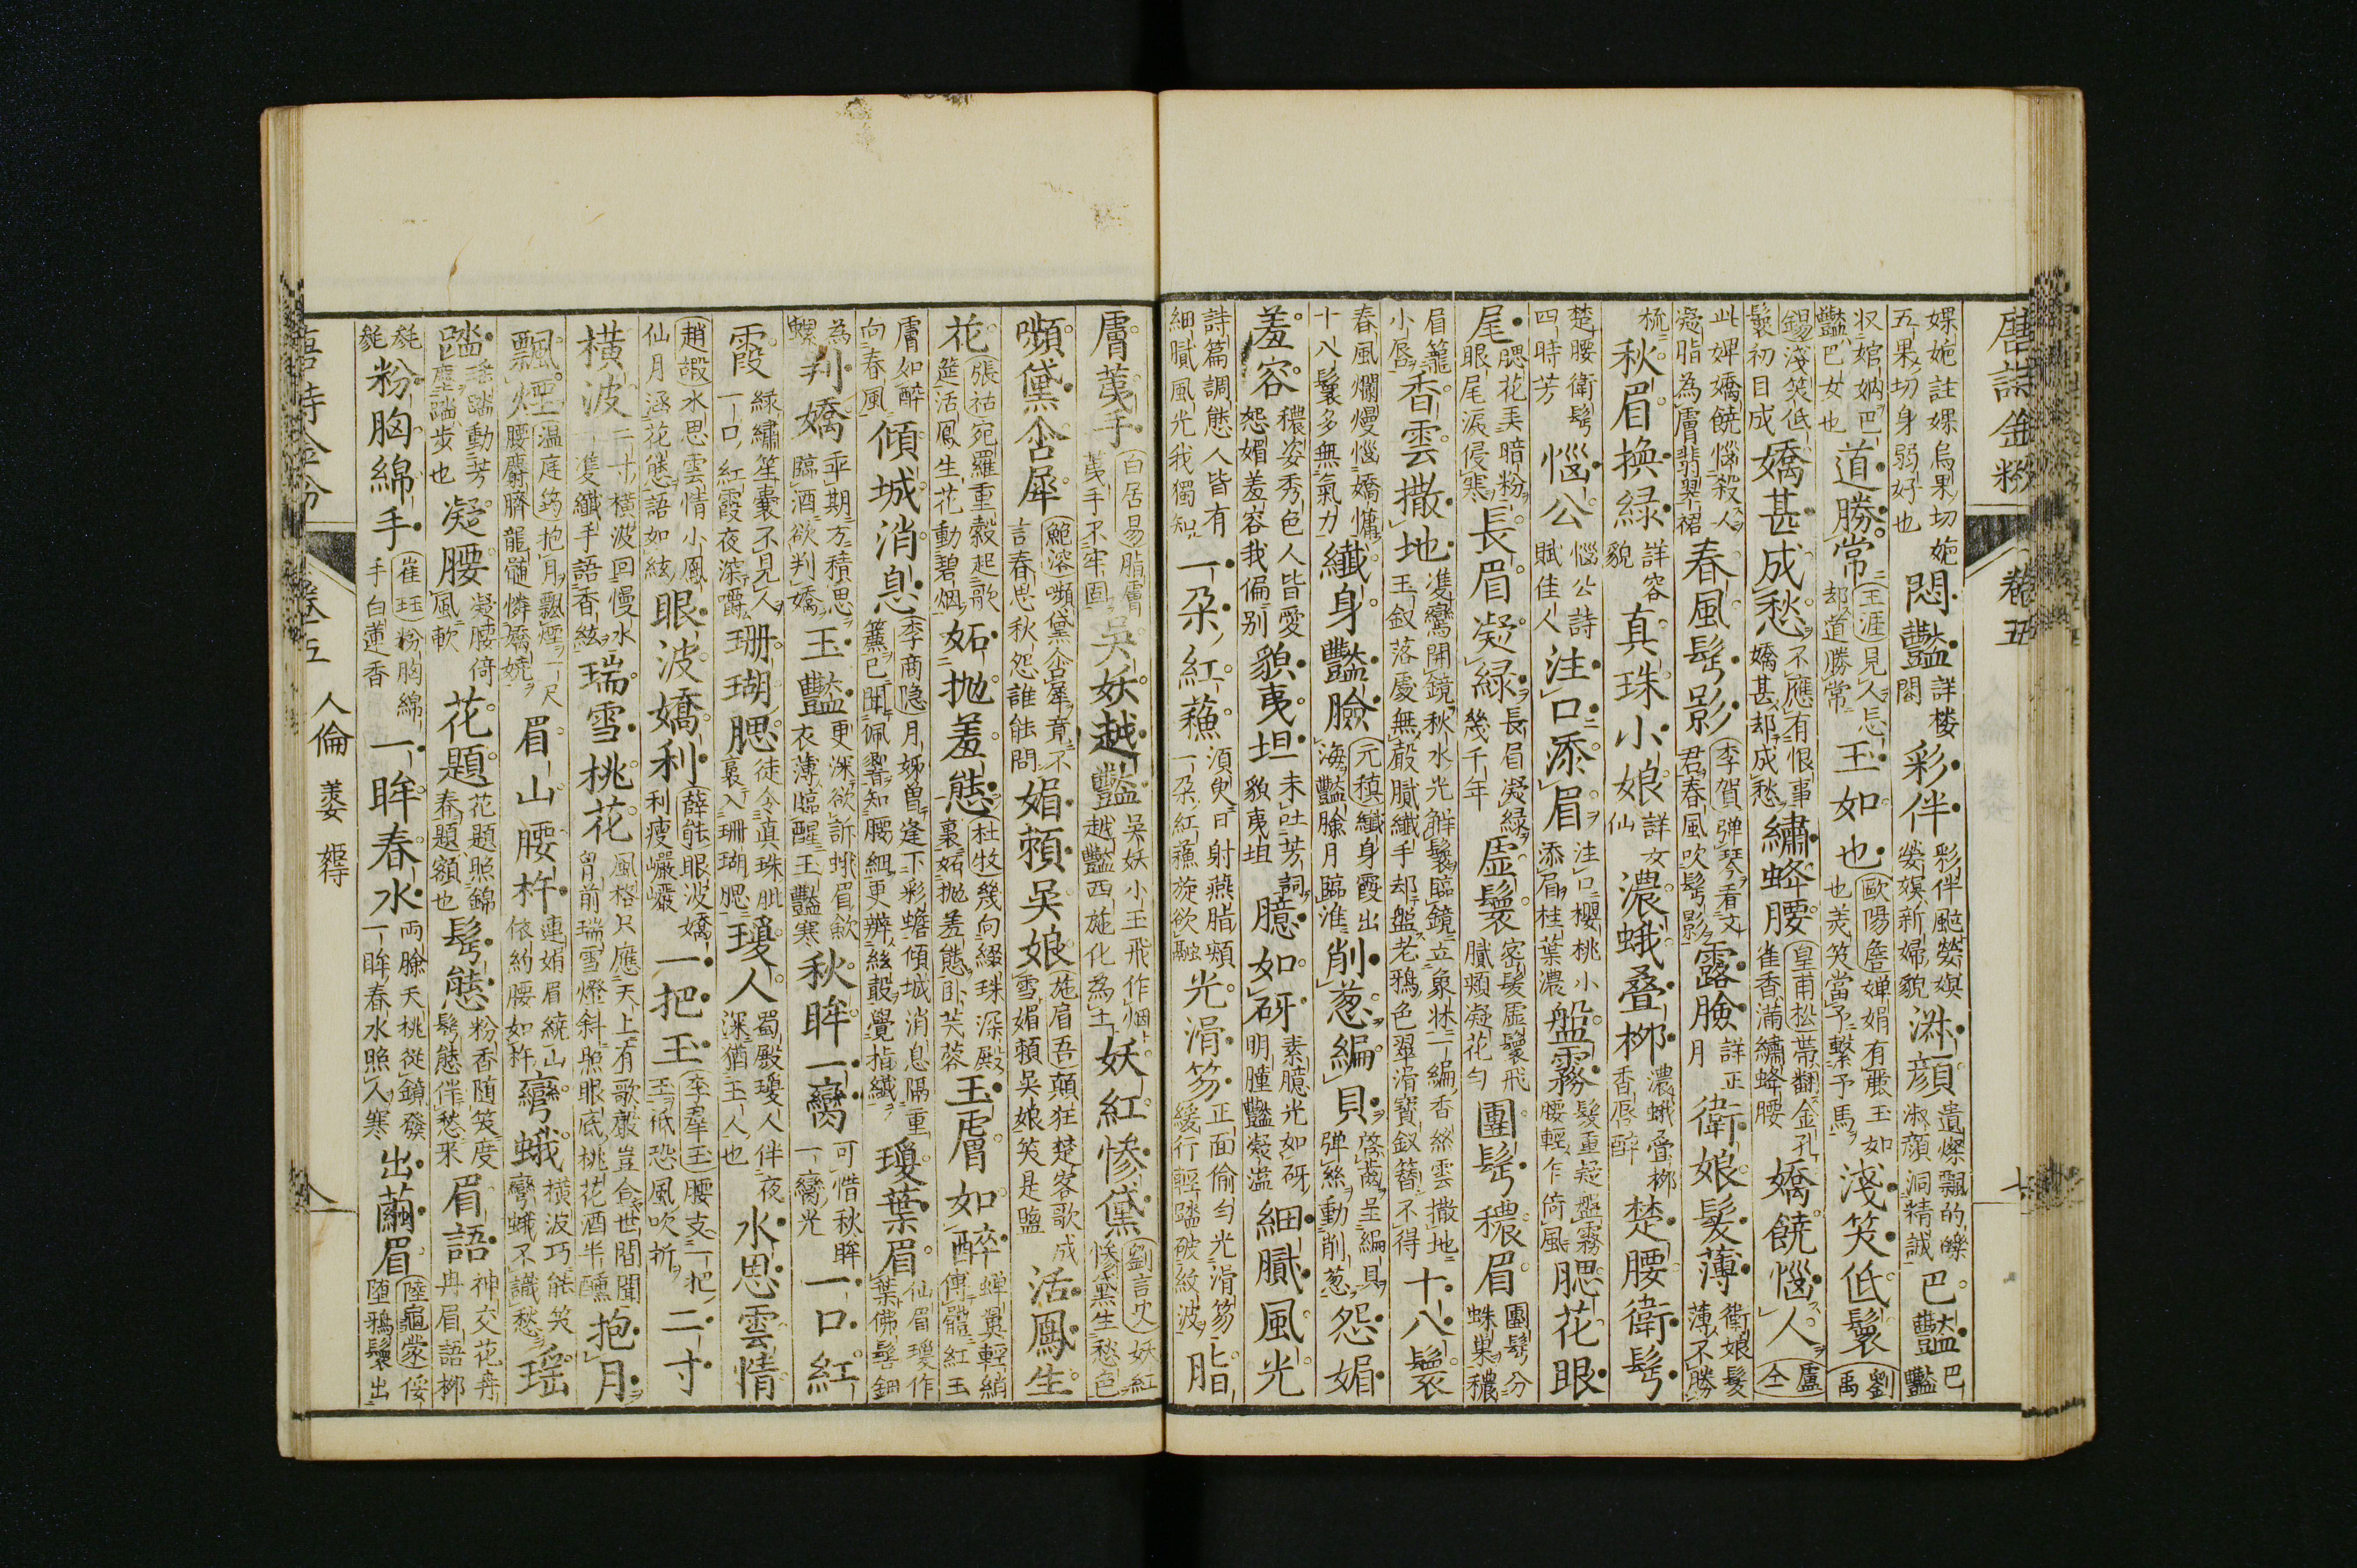 唐詩金粉 卷五 七
婐㛂註婐烏果切㛂五果切身弱好也 悶豔詳楼悶 彩伴彩伴颭嫈嫇嫈嫇新婦貌 淑顔遺燦飄的皪淑顔洞精誠 巴豔巴豔
収婠妠巴豔巴女也 道勝常王涯見人忘却道勝常 玉如也歐陽詹嬋娟有最玉如也美笑當予繋予馬 淺笑低鬟劉禹
錫淺笑低鬟初目成 嬌甚成愁不應有恨事嬌甚却成愁 繡蜂腰皇甫松帯翻金孔雀香滿繡蜂腰 嬌饒惱人盧仝
此婢嬌饒惱殺人凝脂為膚翡翠裙 春風髩影李賀弾琴看文君春風吹髩影 露臉詳正月 衛娘髪薄衛娘髪薄不勝
梳 秋眉換緑詳容貌 真珠小娘詳女仙 濃蛾叠栁濃蛾叠栁香唇醉 楚腰衛髩
楚腰衛髩四時芳 惱公惱公詩賦佳人 注口添眉注口櫻桃小添眉桂葉濃 盤霧髪重疑盤霧腰輕乍倚風 腮花眼
尾腮花弄暗粉眼尾淚侵寒 長眉凝緑長眉凝緑幾千年 虚鬟密髪虚鬟飛膩頬凝花勻 團髩穠眉團髩分蛛巢穠
眉籠小唇 香雲撒地雙鸞開鏡秋水光解鬟臨鏡立象牀一編香絲雲撒地玉釵落處無聲膩纖手却盤老鴉色翠滑寳釵簪不得 十八鬟
春風爛熳惱嬌慵十八鬟多無氣力 纖身豔臉元稹纖身霞出海豔臉月臨淮 削葱編貝啓齒呈編貝弾絲動削葱 怨媚
羞容穠姿秀色人皆愛怨媚羞容我偏别 貌夷坦未吐芳詞貌夷坦 臆如砑素臆光如砑明瞳豔凝溢 細膩風光
詩篇調態人皆有細膩風光我獨知 一朶紅蘓須臾日射燕脂頬一朶紅蘓旋欲融 光滑笏正面偷勻光滑笏緩行輕踏破紋波 脂
膚荑手白居易脂膚荑手不牢固 吳妖越豔吳妖小玉飛作烟越豔西施化為土 妖紅慘黛劉言史妖紅慘黛生愁色
嚬黛含犀鮑溶嚬黛含犀竟不言春思秋怨誰能問 媚頼吳娘施肩吾顛狂楚客歌成雪媚頼吳娘笑是鹽 活鳳生
花張祜宛羅重縠起歌筵活鳳生花動碧烟 妬抛羞態杜牧幾向綴珠深殿裏妬抛羞態卧芙蓉 玉膚如醉蟬翼輕綃傅體紅玉
膚如醉向春風 傾城消息李商隐月姊曽逢下彩蟾傾城消息隔重簾已聞佩響知腰細更辨絃聲覺指纖 瓊葉眉仙眉瓊作葉佛髻鈿
為螺 判嬌乖期方積思臨酒欲判嬌 玉豔更深欲訴蛾眉歛衣薄臨醒玉豔寒 秋眸一臠可惜秋眸一臠光 一口紅
霞緑繡笙囊不見人一口紅霞夜深嚼 珊瑚腮徒令真珠肶裛入珊瑚腮 瓊人蜀殿瓊人伴夜深猶玉人也 水思雲情
趙嘏水思雲情小鳳仙月涵花態語如絃 眼波嬌利薛能眼波嬌利瘦巖巖 一把玉李羣玉腰支一把玉祗恐風吹折 二寸
横波二寸横波回慢水一雙纖手語香絃 瑞雪桃花風格只應天上有歌聲豈合世間聞胷前瑞雪燈斜照眼底桃花酒半醺 抱月
飄煙温庭筠抱月飄煙一尺腰麝臍龍髓憐嬌嬈 眉山腰杵連娟眉繞山依約腰如杵 彎蛾横波巧能笑彎蛾不識愁 瑶
踏瑶踏動芳塵踏步也 凝腰凝腰倚風軟 花題花題照錦春題額也 髩態粉香随笑度髩態伴愁来 眉語神交花冉冉眉語栁
毿毿 粉胸綿手崔珏粉胸綿手白蓮香 一眸春水両臉夭桃従鏡發一眸春水照人寒 出繭眉陸龜蒙倭堕鴉鬟出
唐詩金粉 卷五 人倫 美女 八